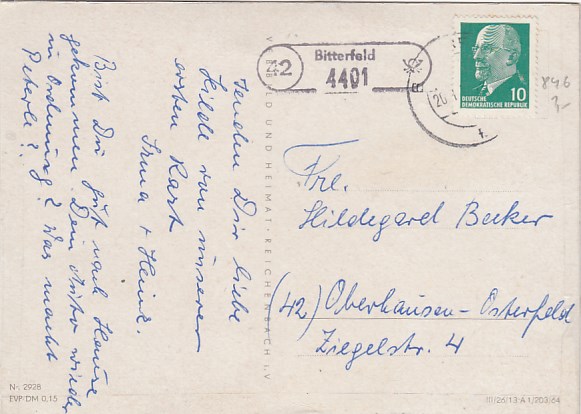 senden Dir liebe
Hilde von unserer
ersten Rast
Irma + Heinz.
Bist Du gut nach Hause
gekommen? Dein Auto wieder
in Ordnung? Was macht
Peterle?
42
Bitterfeld
4401
DEUTSCHE
DEMOKRATISCHE REPUBLIK
10
20.
846
Frl.
Hildegard Becker
(42) Oberhausen-Osterfeld
Ziegelstr. 4
BILD UND HEIMAT · REICHENBACH I.V
Nr. 2928
EVP DM 0,15
III/26/13 A 1/203/64